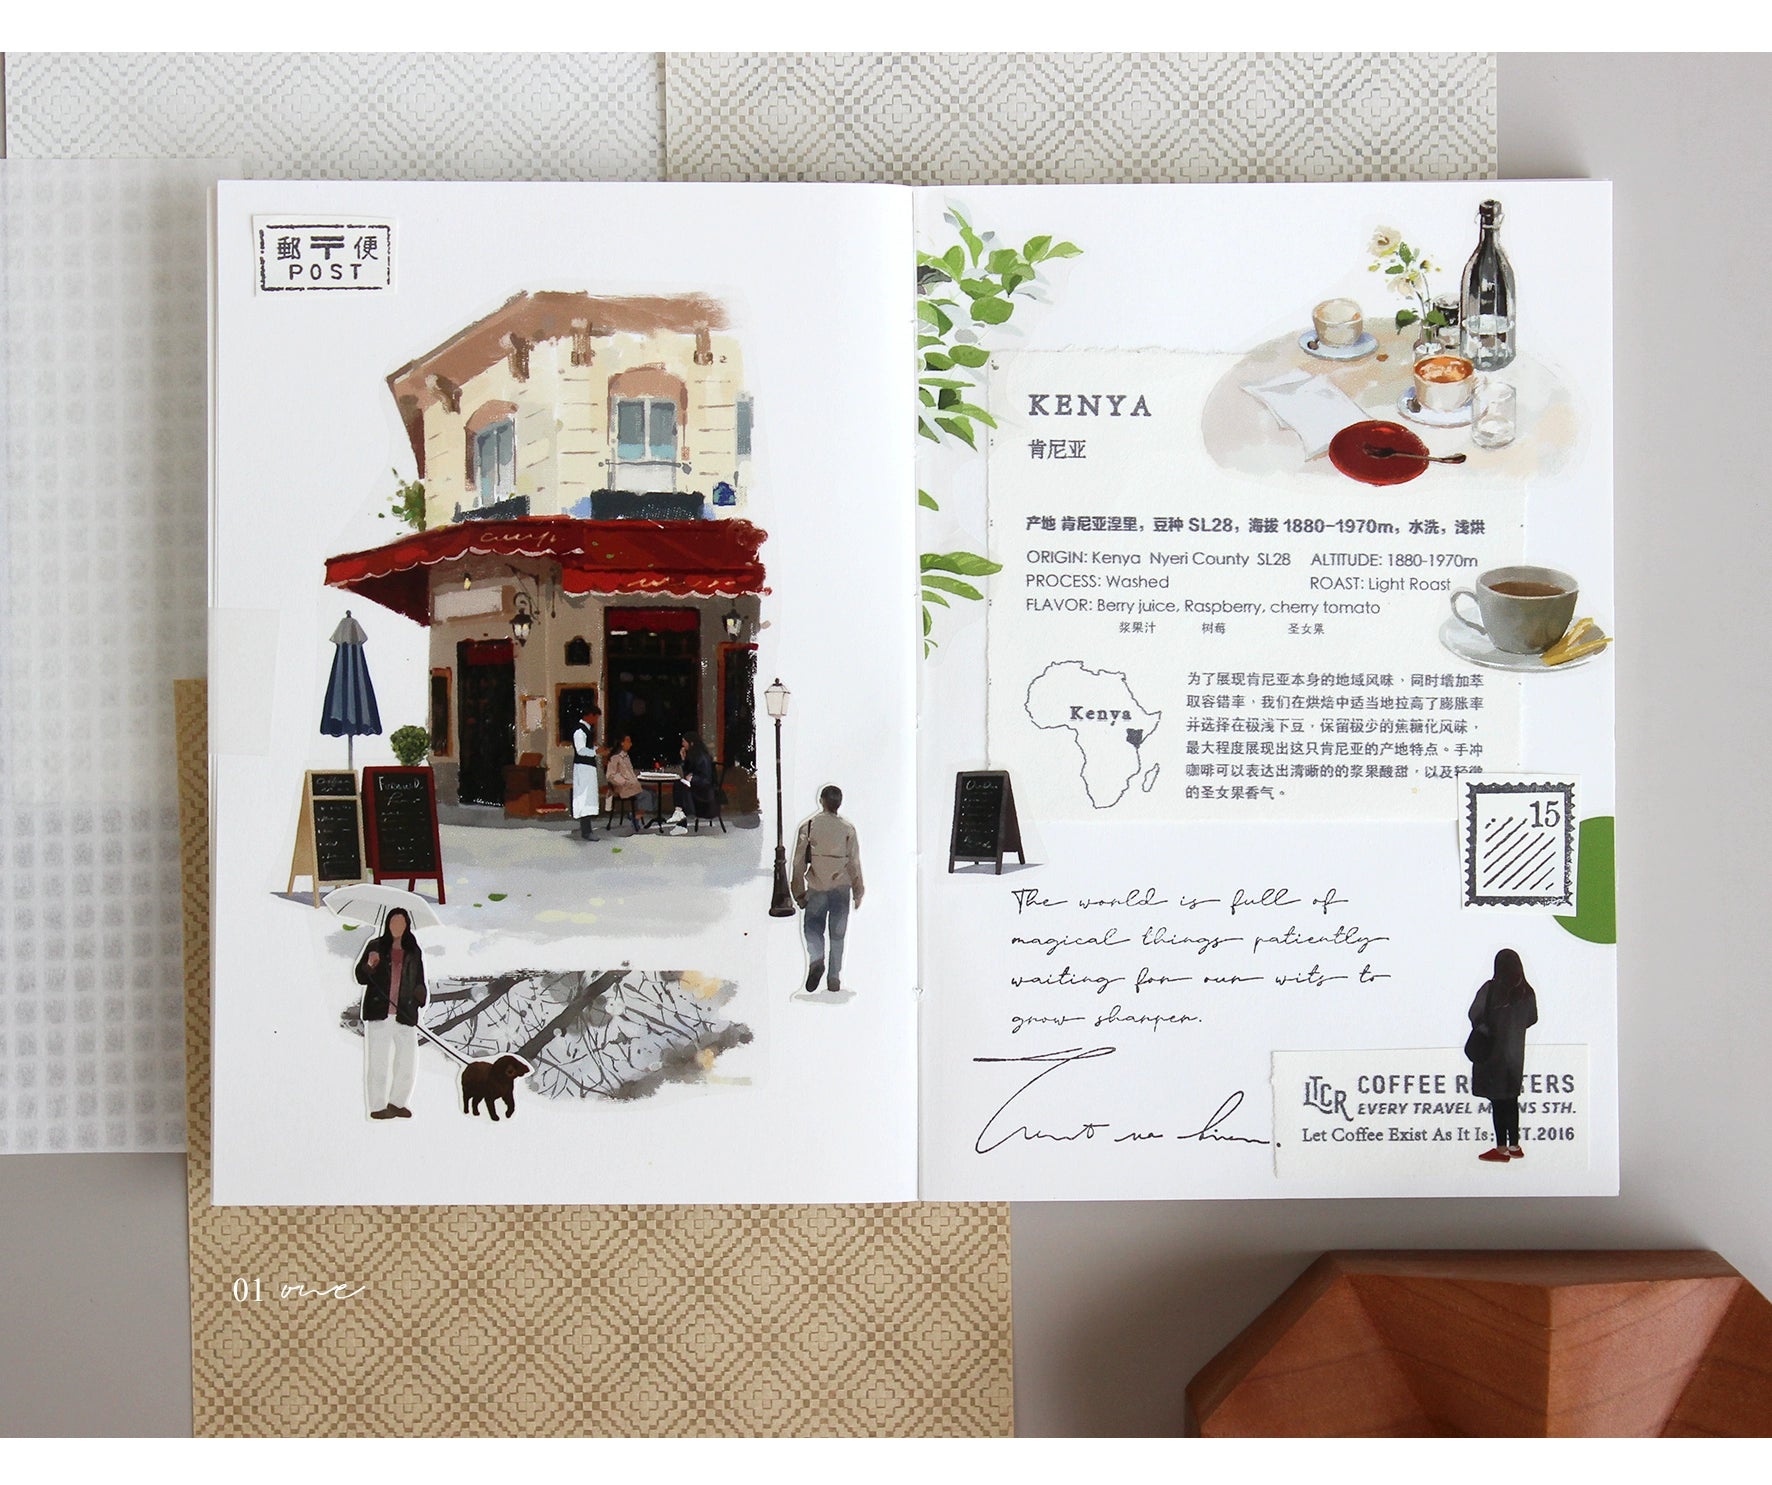 郵〒便
POST
KENYA
肯尼亚
产地 肯尼亚涅里，豆种 SL28，海拔 1880-1970m，水洗，浅烘
ORIGIN: Kenya Nyeri County SL28 ALTITUDE: 1880-1970m
PROCESS: Washed ROAST: Light Roast
FLAVOR: Berry juice, Raspberry, cherry tomato
浆果汁 树莓 圣女果
Kenya
为了展现肯尼亚本身的地域风味，同时增加萃
取容错率，我们在烘焙中适当地拉高了膨胀率
并选择在极浅下豆，保留极少的焦糖化风味，
最大程度展现出这只肯尼亚的产地特点。手冲
咖啡可以表达出清晰的的浆果酸甜，以及轻微
的圣女果香气。
15
The world is full of
magical things patiently
waiting for our wits to
grow sharper.
LTCR
COFFEE
EVERY TRAVEL
Let Coffee Exist As It Is
2016
01 one